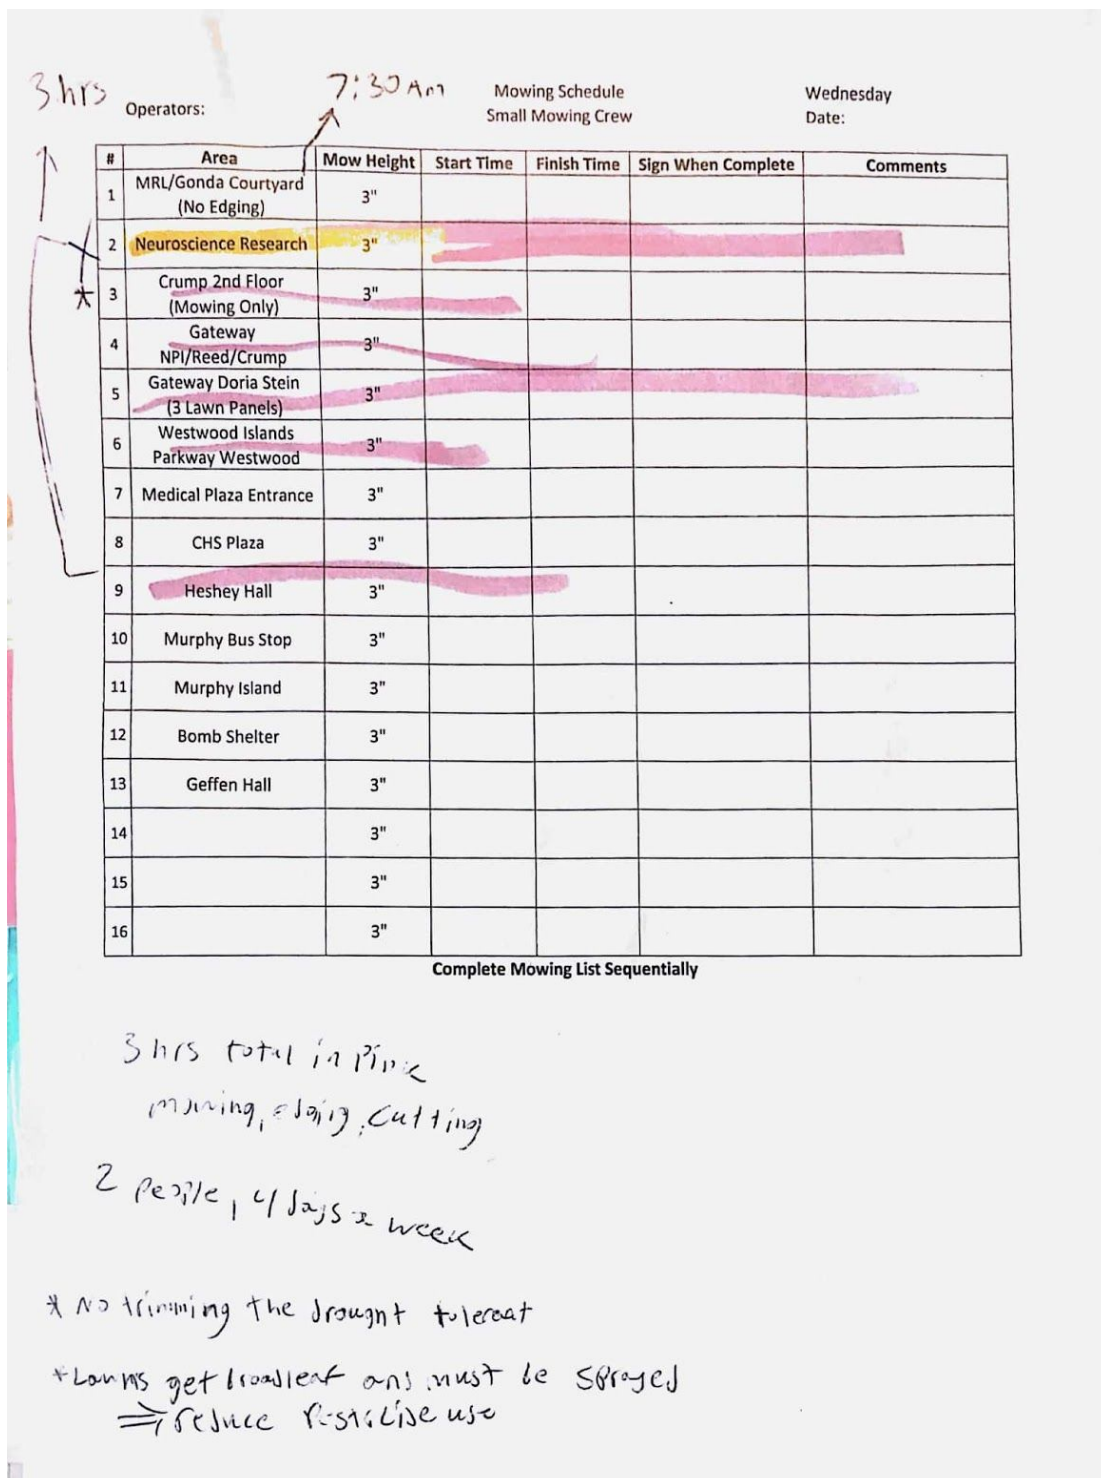 3 hrs
7:30 Am
Mowing Schedule
Small Mowing Crew
Wednesday
Operators:
Date:
# Area Mow Height Start Time Finish Time Sign When Complete Comments
1 MRL/Gonda Courtyard (No Edging) 3"
2 Neuroscience Research 3"
3 Crump 2nd Floor (Mowing Only) 3"
4 Gateway NPI/Reed/Crump 3"
5 Gateway Doria Stein (3 Lawn Panels) 3"
6 Westwood Islands Parkway Westwood 3"
7 Medical Plaza Entrance 3"
8 CHS Plaza 3"
9 Heshey Hall 3"
10 Murphy Bus Stop 3"
11 Murphy Island 3"
12 Bomb Shelter 3"
13 Geffen Hall 3"
14 3"
15 3"
16 3"
Complete Mowing List Sequentially
3 hrs total in Pink
mowing, edging, cutting
2 people, 4 days a week
* No trimming the drought tolerant
* Lawns get broadleaf and must be sprayed
⇒ reduce pesticide use